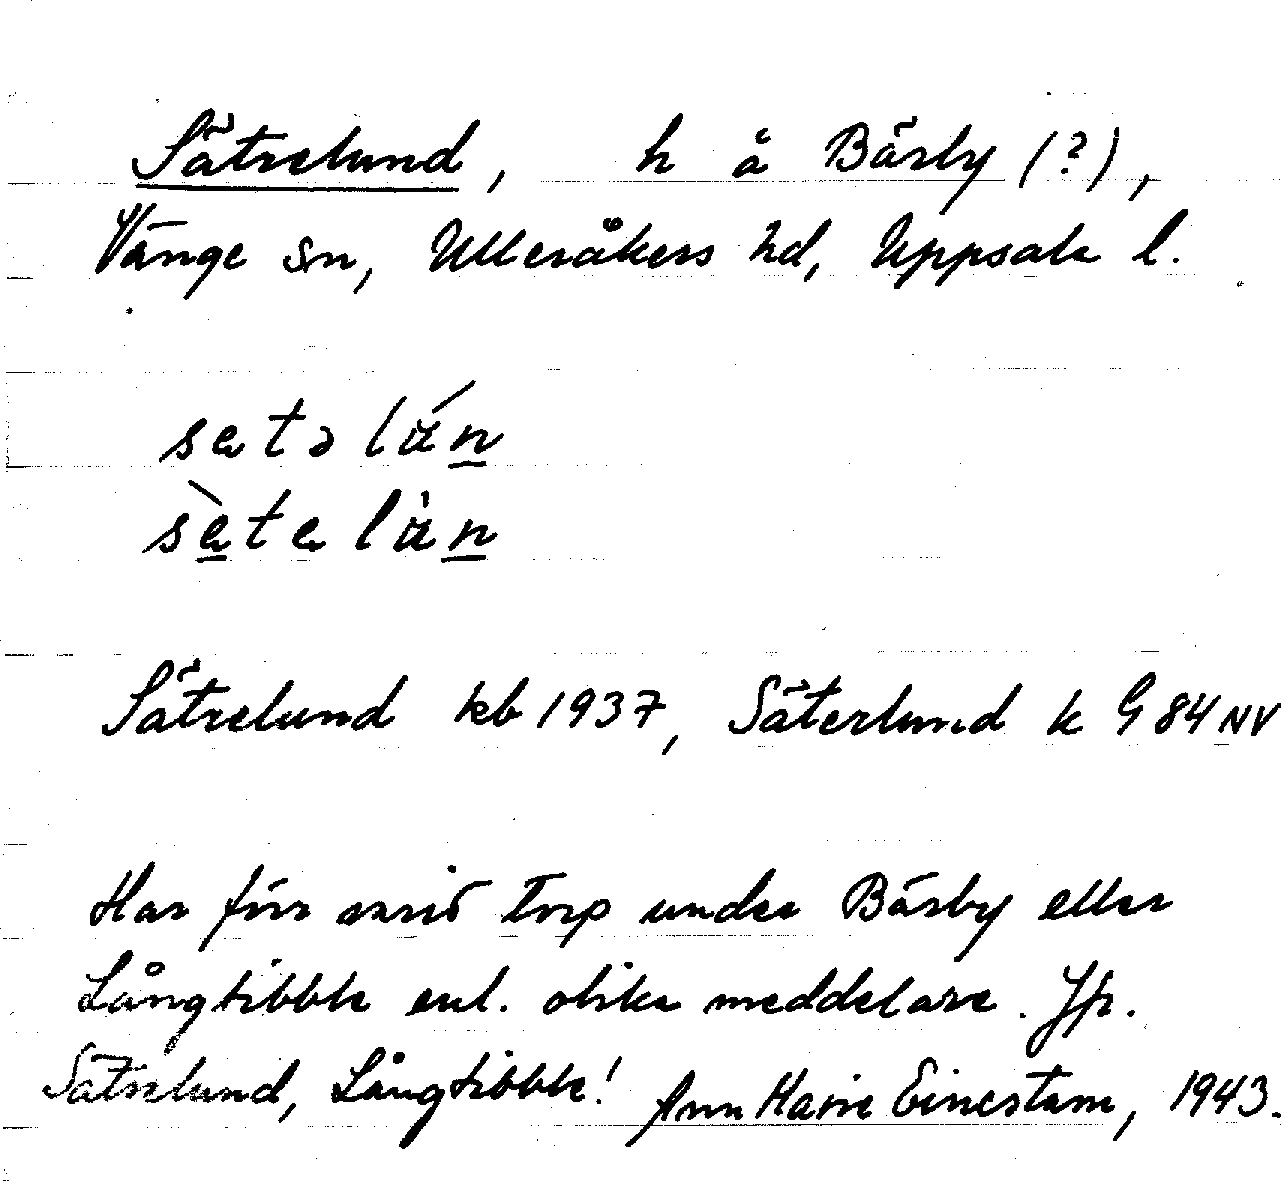 Sätrelund, h å Bärby (?),
Vänge sn, Ulleråkers hd, Uppsala l.
Sätrelund kb 1937, Säterlund k G 84 NV
Har förr varit torp under Bärby eller
Långtibble enl. olika meddelare. Jfr.
Sätrelund, Långtibble! Ann Marie Einerstam, 1943.